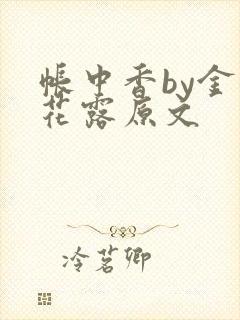 帐中香by金
花露原文
冷茗卿